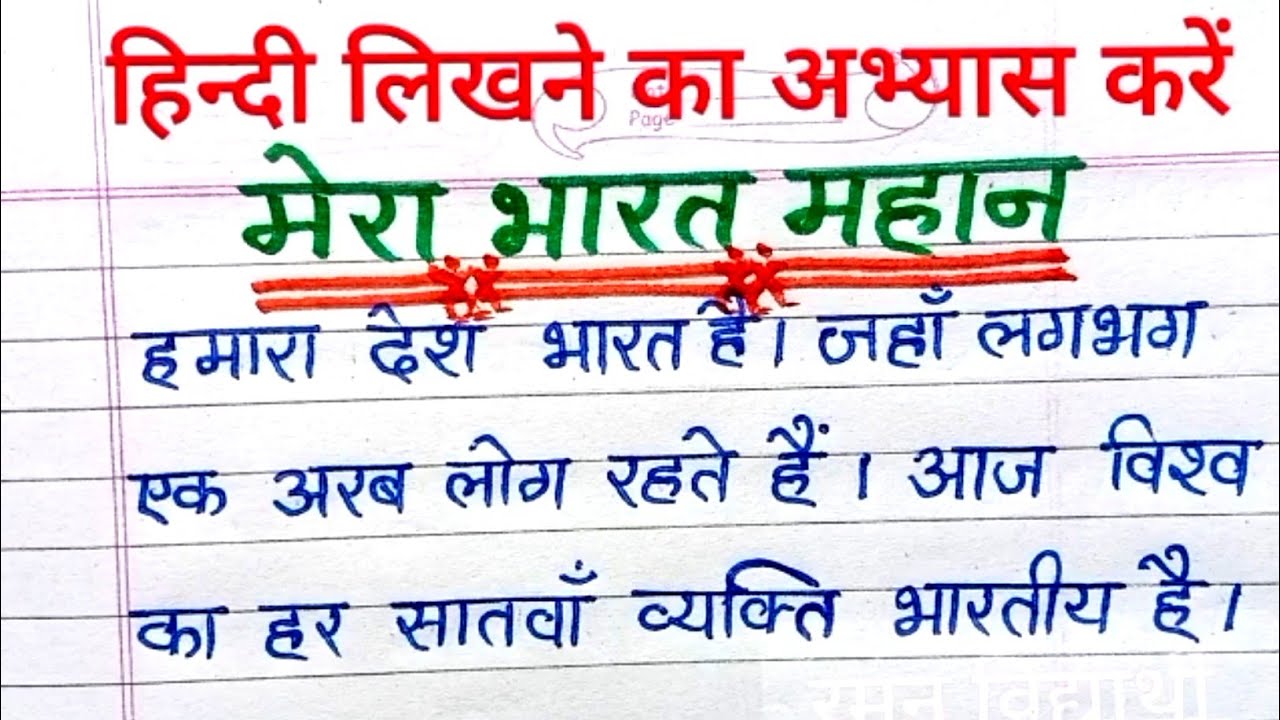 हिन्दी लिखने का अभ्यास करें
Page
मेरा भारत महान
हमारा देश भारत है। जहाँ लगभग
एक अरब लोग रहते हैं। आज विश्व
का हर सातवाँ व्यक्ति भारतीय है।